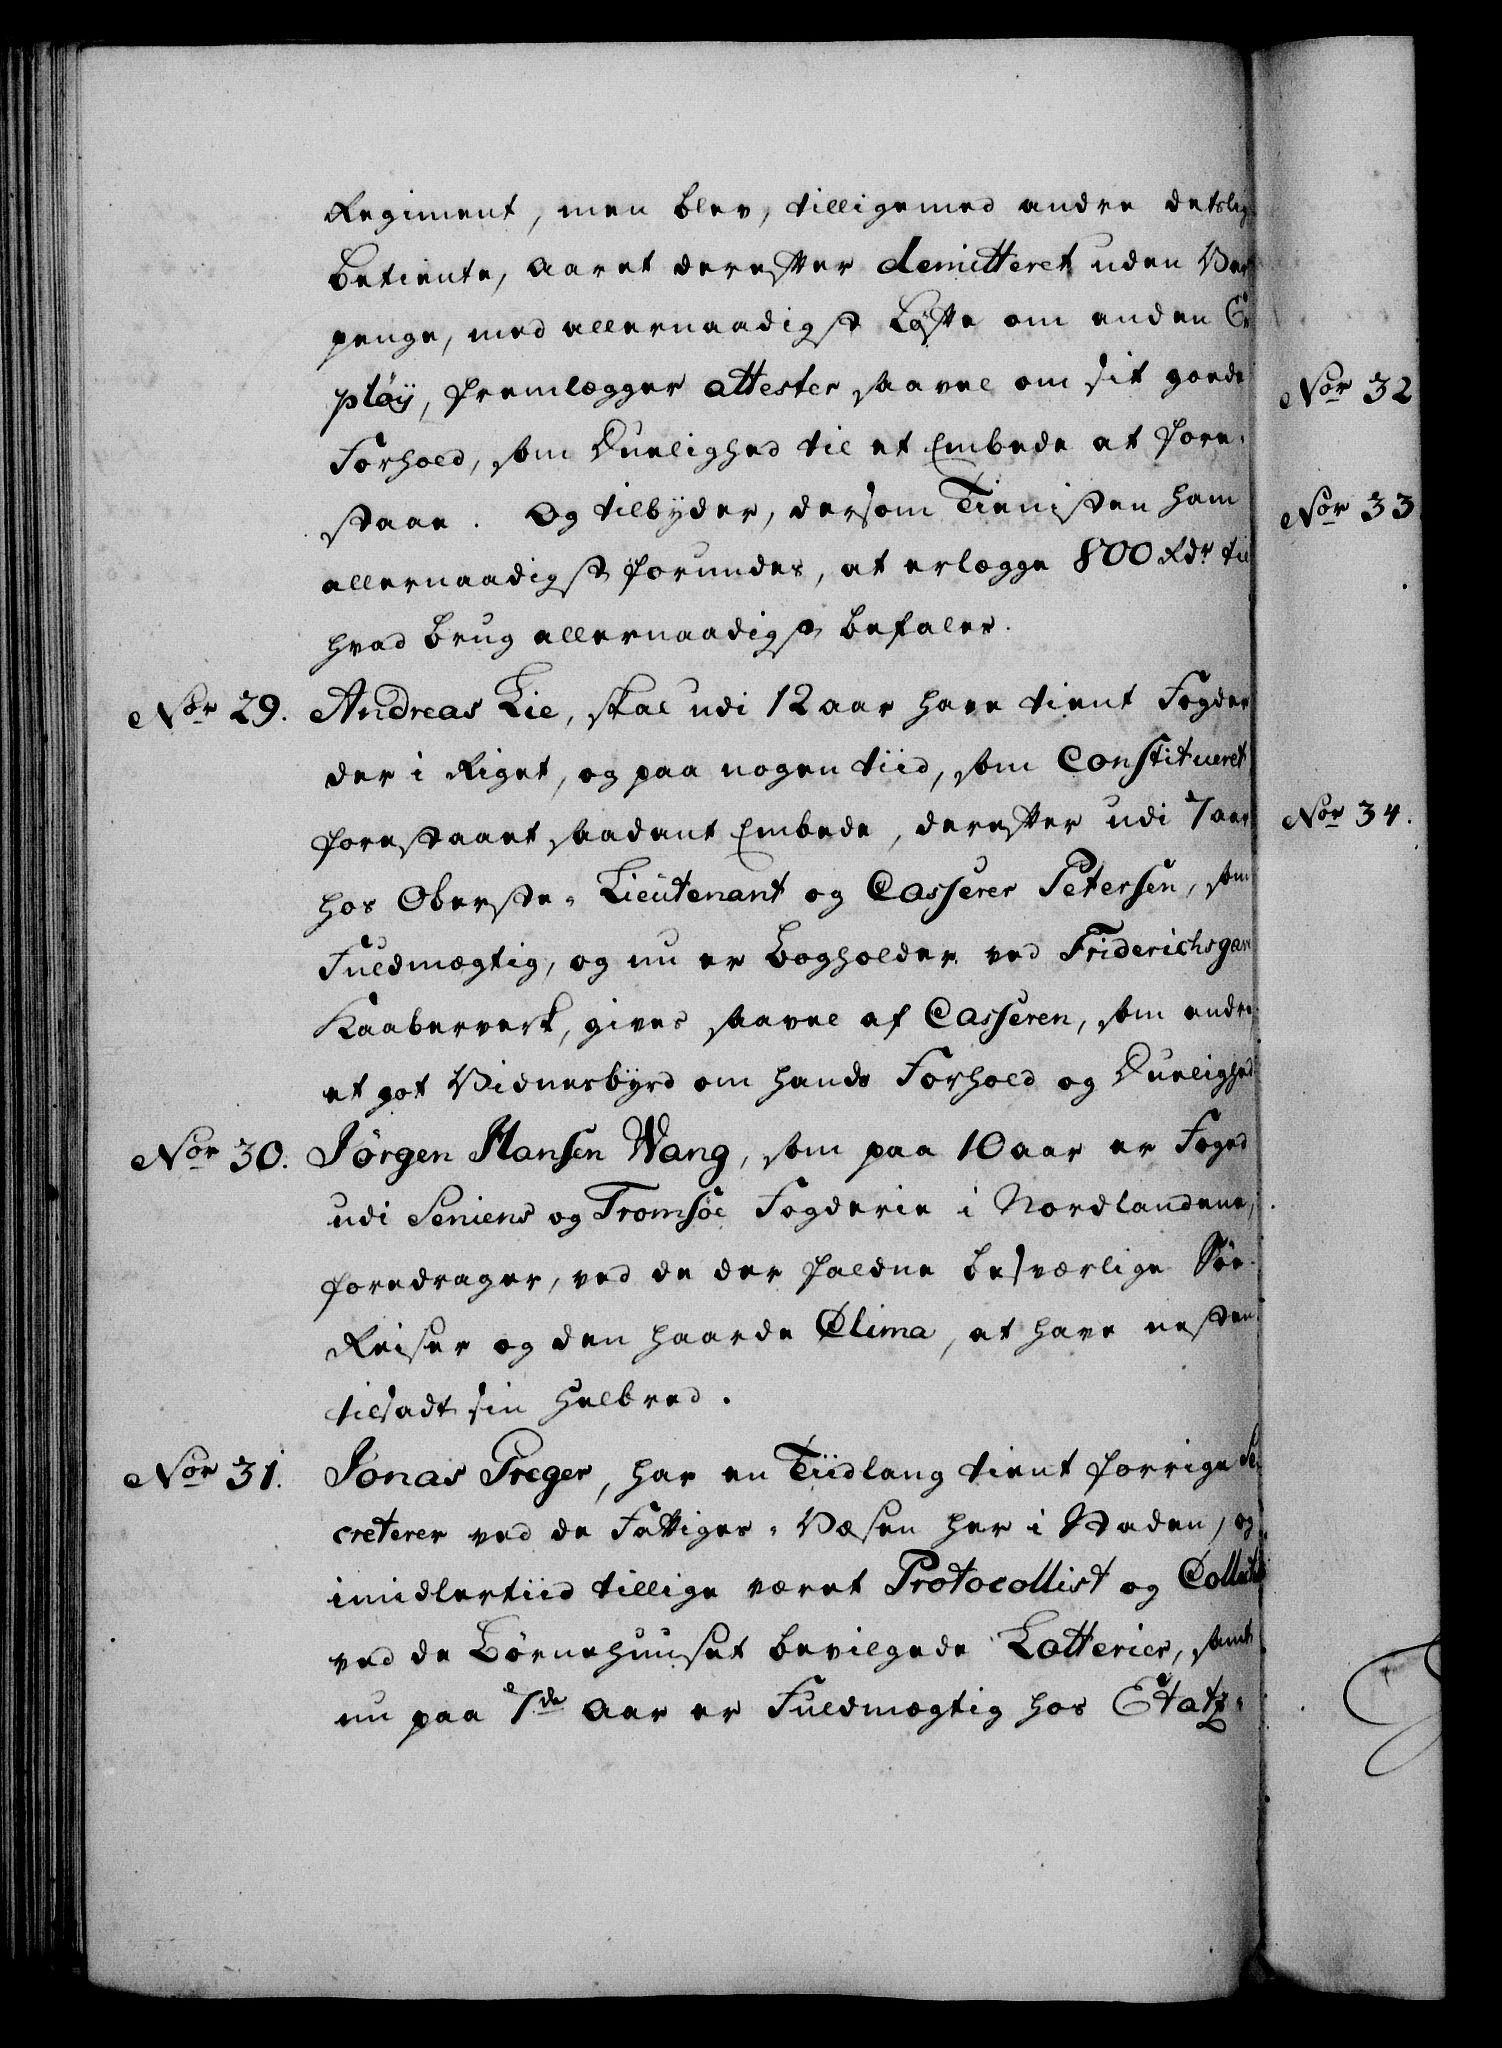 Regiment, men blev, tilligemed andre deslig
betiente, Aaret derefter demitteret uden
penge, med allernaadigst Løfte om anden
pløÿ, fremlegger attester saavel om sit goede
Forhold, som Duelighed til et Embede at fore-
staae. Og tilbÿder, dersom Tienisten ham
allernaadigst forundes, at erlægge 800 Rdr til
hvad brug allernaadigst befales.
Nor 29. Andreas Lie, skal udi 12 aar have tient Fogder
der i Riget, og paa nogen tiid, som Constitueret
forestaaet saadant Embede, derefter udi 7 aar
hos Oberste-Lieutenant og Casserer Petersen, som
Fuldmægtig, og nu er Bogholder ved Friderichsgave
Kaaberverk, gives saavel af Casseren, som andre
et got Vidnesbÿrd om hands Forhold og Duelighed
Nor 30. Jörgen Hansen Wang, som paa 10 aar er Foged
udi Seniens og Tromsöe Fogderie i Nordlandene,
foredrager, ved de der faldne besværlige Söe-
Reiser og den haarde Clima, at have nesten
tilsadt sin Helbred.
Nor 31. Jonas Preger, har en Tiidlang tient forrige Se-
creterer ved de Fattiges-Væsen her i Staden, og
imidlertiid tillige været Protocollist og
ved de Börnehuuset bevilgede Lotterier, samt
nu paa 7de Aar er Fuldmægtig hos Etatz-
Nor 32
Nor 33
Nor 34.